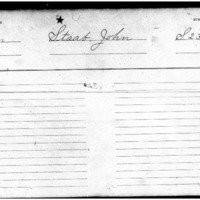 Staab, John S 23